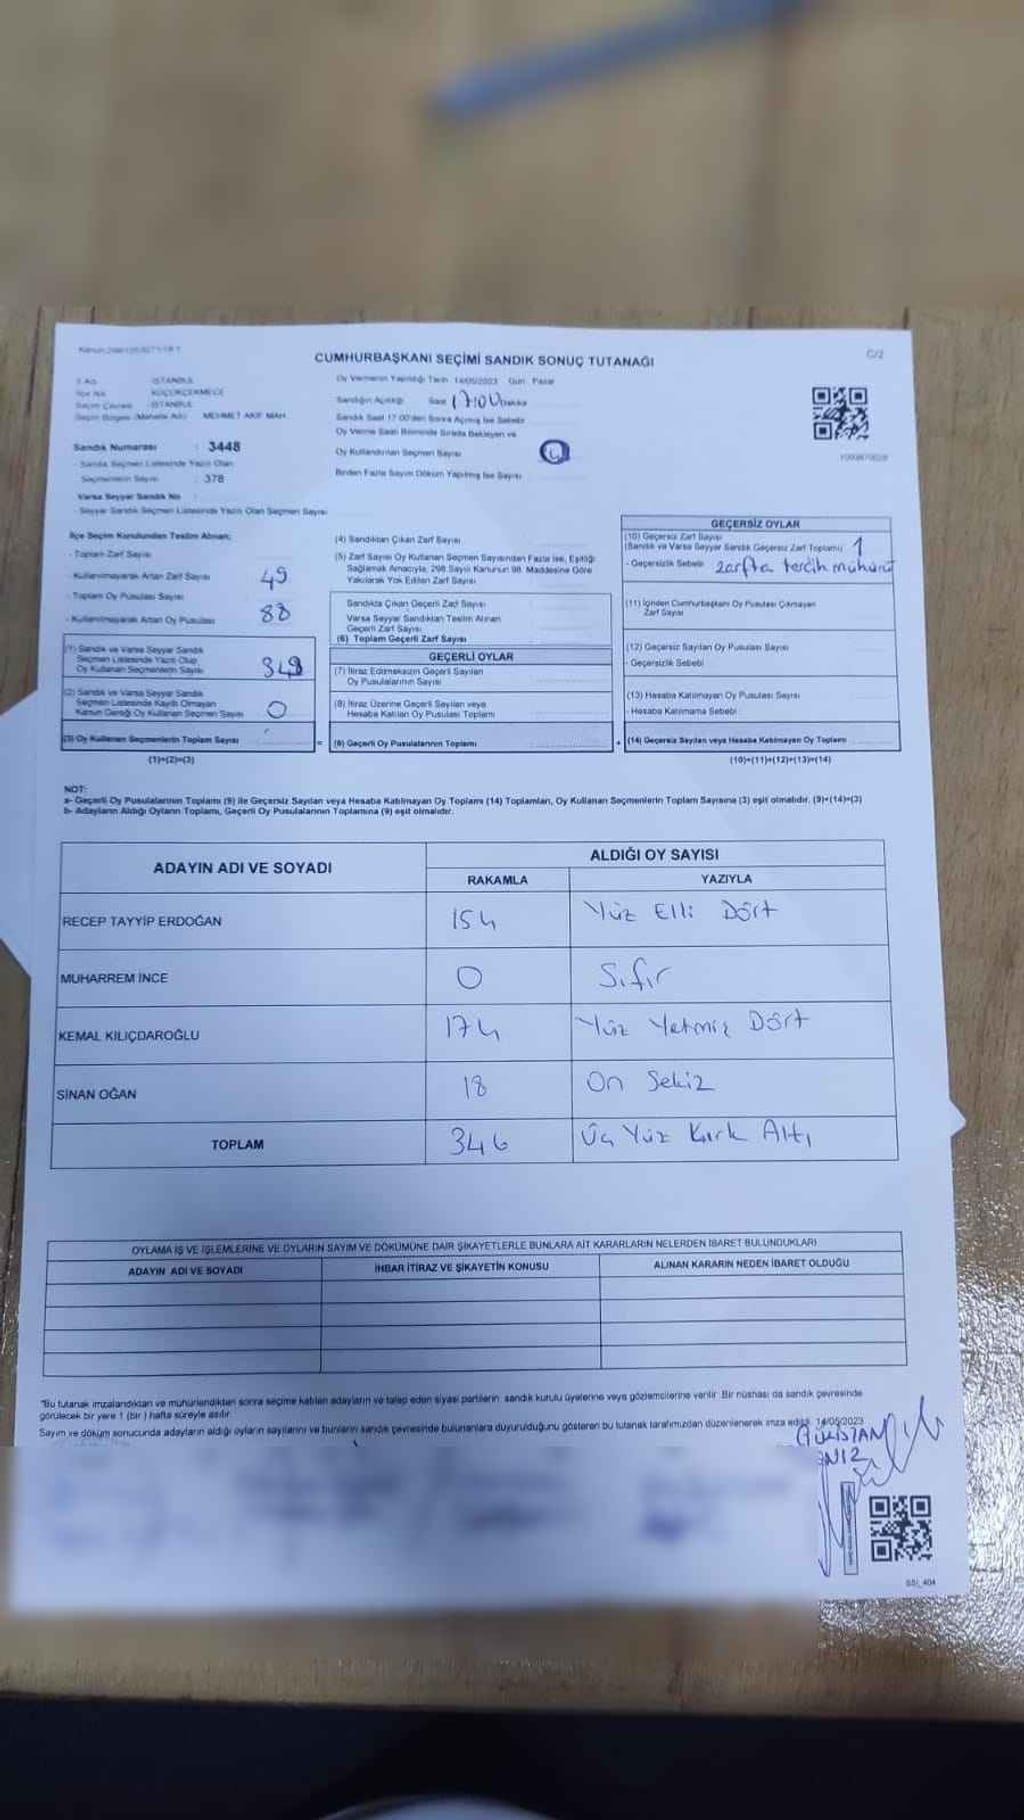 CUMHURBAŞKANI SEÇİMİ SANDIK SONUÇ TUTANAĞI
C/2
İl Adı İSTANBUL
KÜÇÜKÇEKMECE
Seçim Çevresi İSTANBUL
Seçim Bölgesi (Mahalle Adı) MEHMET AKİF MAH.
Sandık Numarası : 3448
- Sandık Seçmen Listesinde Yazılı Olan
Seçmenlerin Sayısı : 378
Varsa Seyyar Sandık No :
- Seyyar Sandık Seçmen Listesinde Yazılı Olan Seçmen Sayısı
Oy Vermenin Yapıldığı Tarih 14/05/2023 Gün Pazar
Sandığın Açıldığı Saat 17:00 Dakika
Sandık Saat 17:00'den Sonra Açılmış İse Sebebi
Oy Verme Saati Bitiminde Sırada Bekleyen ve
Oy Kullandırılan Seçmen Sayısı
Birden Fazla Sayım Döküm Yapılmış İse Sayısı
İlçe Seçim Kurulundan Teslim Alınan;
- Toplam Zarf Sayısı
- Kullanılmayarak Artan Zarf Sayısı 49
- Toplam Oy Pusulası Sayısı
- Kullanılmayarak Artan Oy Pusulası 88
(1) Sandık ve Varsa Seyyar Sandık
Seçmen Listesinde Yazılı Olup
Oy Kullanan Seçmenlerin Sayısı 349
(2) Sandık ve Varsa Seyyar Sandık
Seçmen Listesinde Kayıtlı Olmayan
Kanun Gereği Oy Kullanan Seçmen Sayısı 0
(3) Oy Kullanan Seçmenlerin Toplam Sayısı
(1)+(2)=(3)
(4) Sandıktan Çıkan Zarf Sayısı
(5) Zarf Sayısı Oy Kullanan Seçmen Sayısından Fazla İse, Eşitliği
Sağlamak Amacıyla, 298 Sayılı Kanunun 98. Maddesine Göre
Yakılarak Yok Edilen Zarf Sayısı
Sandıkta Çıkan Geçerli Zarf Sayısı
Varsa Seyyar Sandıktan Teslim Alınan
Geçerli Zarf Sayısı
(6) Toplam Geçerli Zarf Sayısı
GEÇERLİ OYLAR
(7) İtiraz Edilmeksizin Geçerli Sayılan
Oy Pusulalarının Sayısı
(8) İtiraz Üzerine Geçerli Sayılan veya
Hesaba Katılan Oy Pusulası Toplamı
= (9) Geçerli Oy Pusulalarının Toplamı
GEÇERSİZ OYLAR
(10) Geçersiz Zarf Sayısı
(Sandık ve Varsa Seyyar Sandık Geçersiz Zarf Toplamı) 1
- Geçersizlik Sebebi zarfta tercih mühürü
(11) İçinden Cumhurbaşkanı Oy Pusulası Çıkmayan
Zarf Sayısı
(12) Geçersiz Sayılan Oy Pusulası Sayısı
- Geçersizlik Sebebi
(13) Hesaba Katılmayan Oy Pusulası Sayısı
- Hesaba Katılmama Sebebi
+ (14) Geçersiz Sayılan veya Hesaba Katılmayan Oy Toplamı
(10)+(11)+(12)+(13)=(14)
NOT:
a- Geçerli Oy Pusulalarının Toplamı (9) ile Geçersiz Sayılan veya Hesaba Katılmayan Oy Toplamı (14) Toplamları, Oy Kullanan Seçmenlerin Toplam Sayısına (3) eşit olmalıdır. (9)+(14)=(3)
b- Adayların Aldığı Oyların Toplamı, Geçerli Oy Pusulalarının Toplamına (9) eşit olmalıdır.
ADAYIN ADI VE SOYADI
ALDIĞI OY SAYISI
RAKAMLA YAZIYLA
RECEP TAYYİP ERDOĞAN 154 Yüz Elli Dört
MUHARREM İNCE 0 Sıfır
KEMAL KILIÇDAROĞLU 174 Yüz Yetmiş Dört
SİNAN OĞAN 18 On Sekiz
TOPLAM 346 Üç Yüz Kırk Altı
OYLAMA İŞ VE İŞLEMLERİNE VE OYLARIN SAYIM VE DÖKÜMÜNE DAİR ŞİKAYETLERLE BUNLARA AİT KARARLARIN NELERDEN İBARET BULUNDUKLARI
ADAYIN ADI VE SOYADI İHBAR İTİRAZ VE ŞİKAYETİN KONUSU ALINAN KARARIN NEDEN İBARET OLDUĞU
*Bu tutanak imzalandıktan ve mühürlendikten sonra seçime katılan adayların ve talep eden siyasi partilerin sandık kurulu üyelerine veya gözlemcilerine verilir. Bir nüshası da sandık çevresinde
görülecek bir yere 1 (bir) hafta süreyle asılır.
Sayım ve döküm sonucunda adayların aldığı oyların sayılarını ve bunların sandık çevresinde bulunanlara duyurulduğunu gösteren bu tutanak tarafımızdan düzenlenerek imza edildi. 14/05/2023